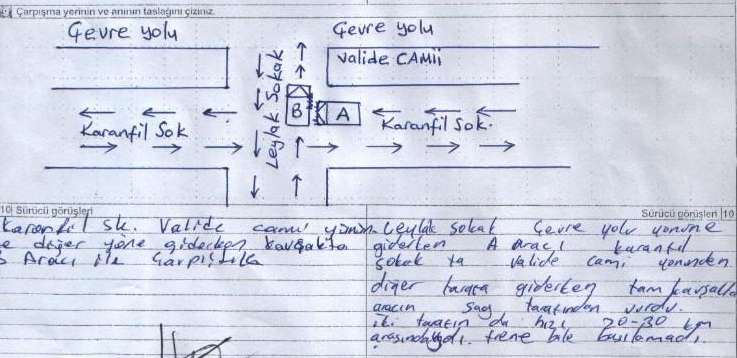 9 Çarpışma yerinin ve anının taslağını çiziniz.
Çevre yolu
Çevre yolu
Valide CAMii
Leylak Sokak
B
A
Karanfil Sok
Karanfil Sok.
10 Sürücü görüşleri
Karanfil sk. Valide camii yönün
e diğer yöne giderken kavşakta
B Aracı ile Çarpıştık
Sürücü görüşleri 10
Leylak sokak Çevre yolu yönüne
giderken A aracı karanfil
sokak ta valide cami yönünden
diğer tarafa giderken tam kavşakta
aracın sağ tarafından vurdu.
iki tarafın da hızı 20-30 km
arasındaydı. frene bile basılamadı.